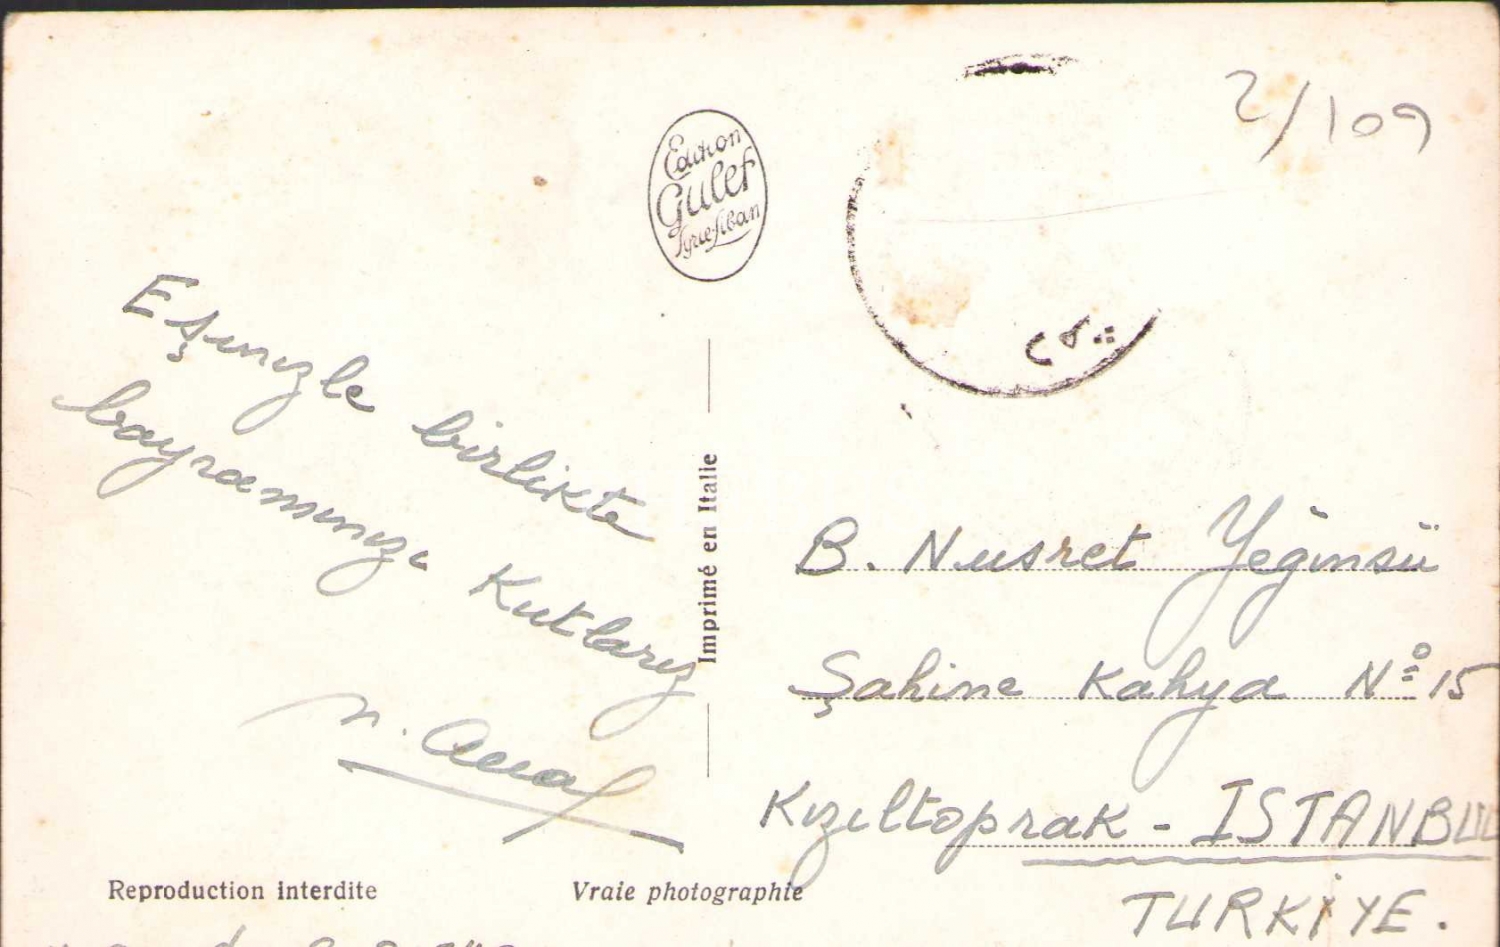 2/109
Edition
Gulef
Syrie-Liban
Eşinizle birlikte
bayramınızı Kutlarız
Imprimé en Italie
B. Nusret Yeğinsü
Şahine Kahya Nº 15
Kızıltoprak - ISTANBUL
TURKİYE.
Reproduction interdite
Vraie photographie